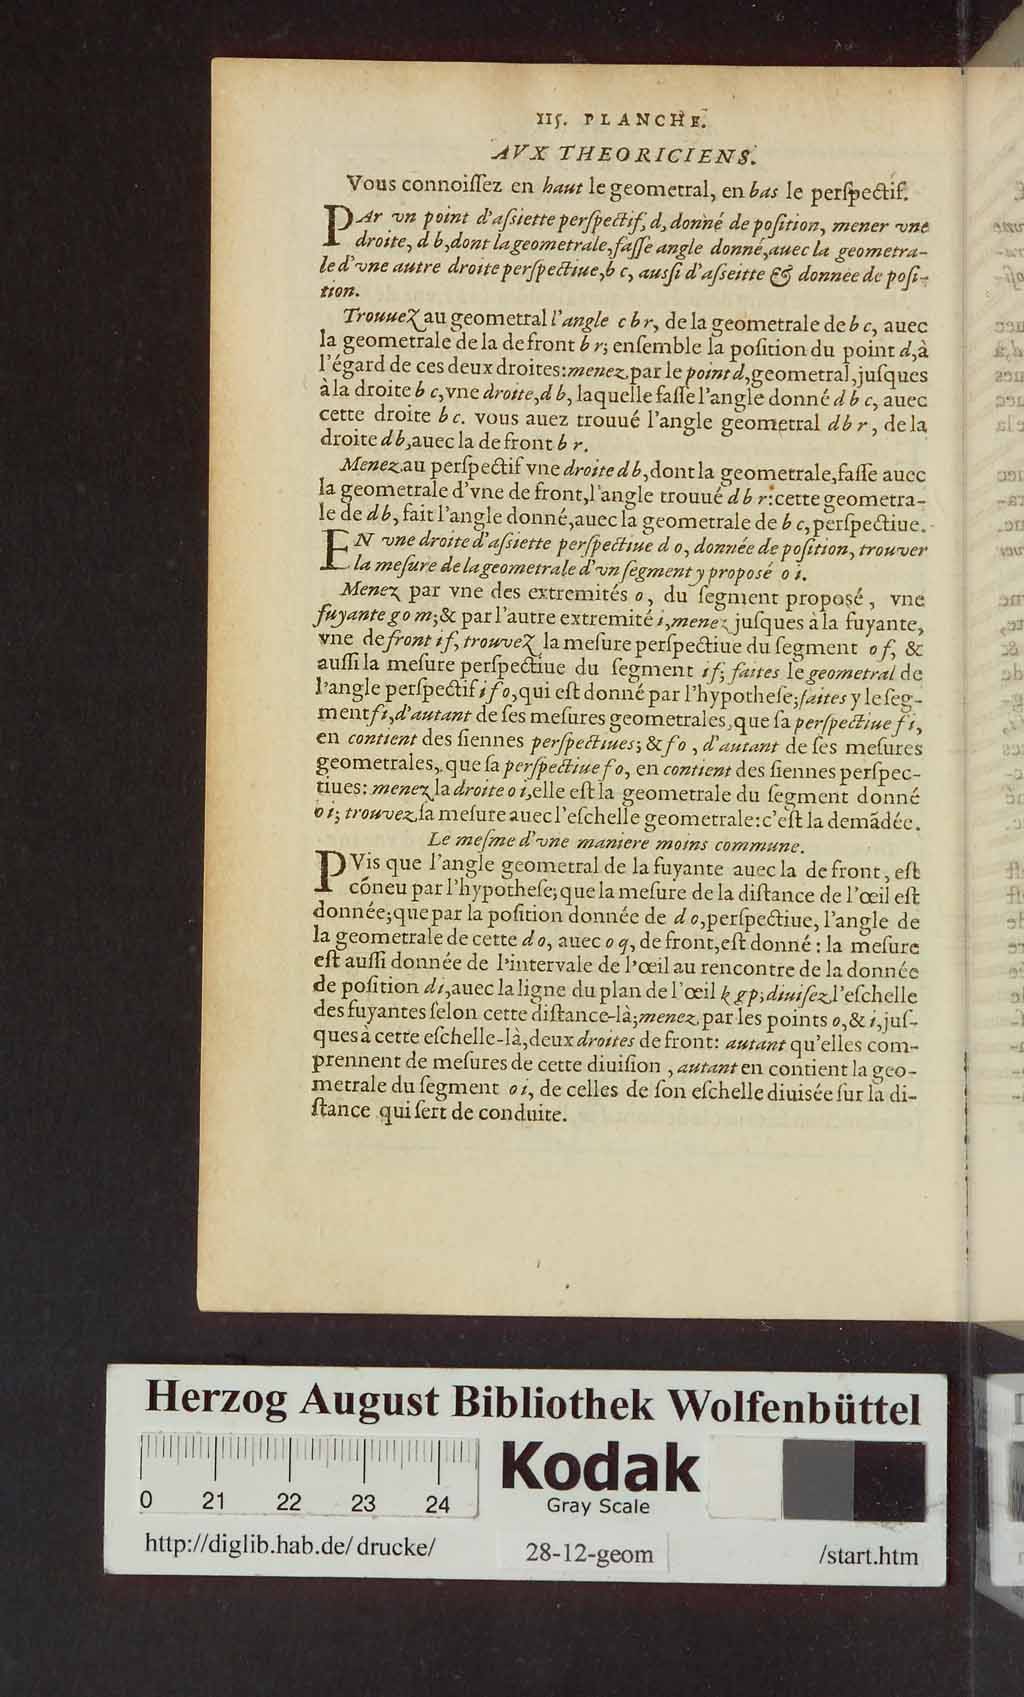 115. PLANCHE.
AVX THEORICIENS.
Vous connoiſſez en haut le geometral, en bas le perſpectif.
PAr vn point d'aſsiette perſpectif, d, donné de poſition, mener vne
droite, d b, dont la geometrale, faſſe angle donné, auec la geometra-
le d'vne autre droite perſpectiue, b c, auſsi d'aſseitte & donnée de poſi-
tion.
Trouuez au geometral l'angle c b r, de la geometrale de b c, auec
la geometrale de la de front b r; enſemble la poſition du point d, à
l'égard de ces deux droites: menez par le point d, geometral, juſques
à la droite b c, vne droite, d b, laquelle faſſe l'angle donné d b c, auec
cette droite b c. vous auez trouué l'angle geometral d b r, de la
droite d b, auec la de front b r.
Menez au perſpectif vne droite d b, dont la geometrale, faſſe auec
la geometrale d'vne de front, l'angle trouué d b r: cette geometra-
le de d b, fait l'angle donné, auec la geometrale de b c, perſpectiue.
EN vne droite d'aſsiette perſpectiue d o, donnée de poſition, trouver
la meſure de la geometrale d'vn ſegment y proposé o i.
Menez par vne des extremités o, du ſegment proposé, vne
fuyante g o m; & par l'autre extremité i, menez juſques à la fuyante,
vne de front i f, trouvez la meſure perſpectiue du ſegment o f, &
auſſi la meſure perſpectiue du ſegment i f; faites le geometral de
l'angle perſpectif i f o, qui eſt donné par l'hypotheſe; faites y le ſeg-
ment f i, d'autant de ſes meſures geometrales, que ſa perſpectiue f i,
en contient des ſiennes perſpectiues; & f o, d'autant de ſes meſures
geometrales, que ſa perſpectiue f o, en contient des ſiennes perſpec-
tiues: menez la droite o i, elle eſt la geometrale du ſegment donné
o i; trouvez ſa meſure auec l'eſchelle geometrale: c'eſt la demãdée.
Le meſme d'vne maniere moins commune.
PVis que l'angle geometral de la fuyante auec la de front, eſt
cõneu par l'hypotheſe; que la meſure de la diſtance de l'œil eſt
donnée; que par la poſition donnée de d o, perſpectiue, l'angle de
la geometrale de cette d o, auec o q, de front, eſt donné: la meſure
eſt auſſi donnée de l'intervale de l'œil au rencontre de la donnée
de poſition d i, auec la ligne du plan de l'œil k g p; diuiſez l'eſchelle
des fuyantes ſelon cette diſtance-là; menez par les points o, & i, juſ-
ques à cette eſchelle-là, deux droites de front: autant qu'elles com-
prennent de meſures de cette diuiſion, autant en contient la geo-
metrale du ſegment o i, de celles de ſon eſchelle diuisée ſur la di-
ſtance qui ſert de conduite.
Herzog August Bibliothek Wolfenbüttel
0 21 22 23 24
Kodak
Gray Scale
http://diglib.hab.de/drucke/
28-12-geom
/start.htm